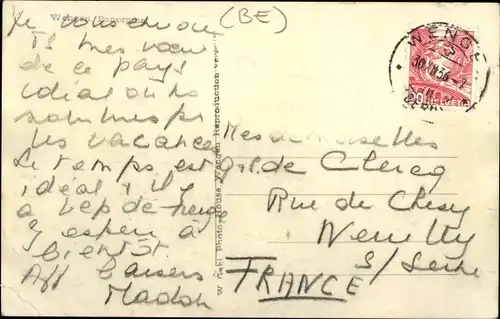 Wengen Panorama
(BE)
Je vous envoie
ts mes vœux
de ce pays
idéal où ns
sommes pr
les vacances
Le temps est
idéal & il y
a bep de neige
J'espère à
bientôt
Aff baisers
Madon
Photo-House Wengen Reproduction verb.
WENGEN
30.XII.36-7
20 HELVETIA
Mesdemoiselles
de Clercq
Rue de Chesy
Neuilly
s/ Seine
FRANCE